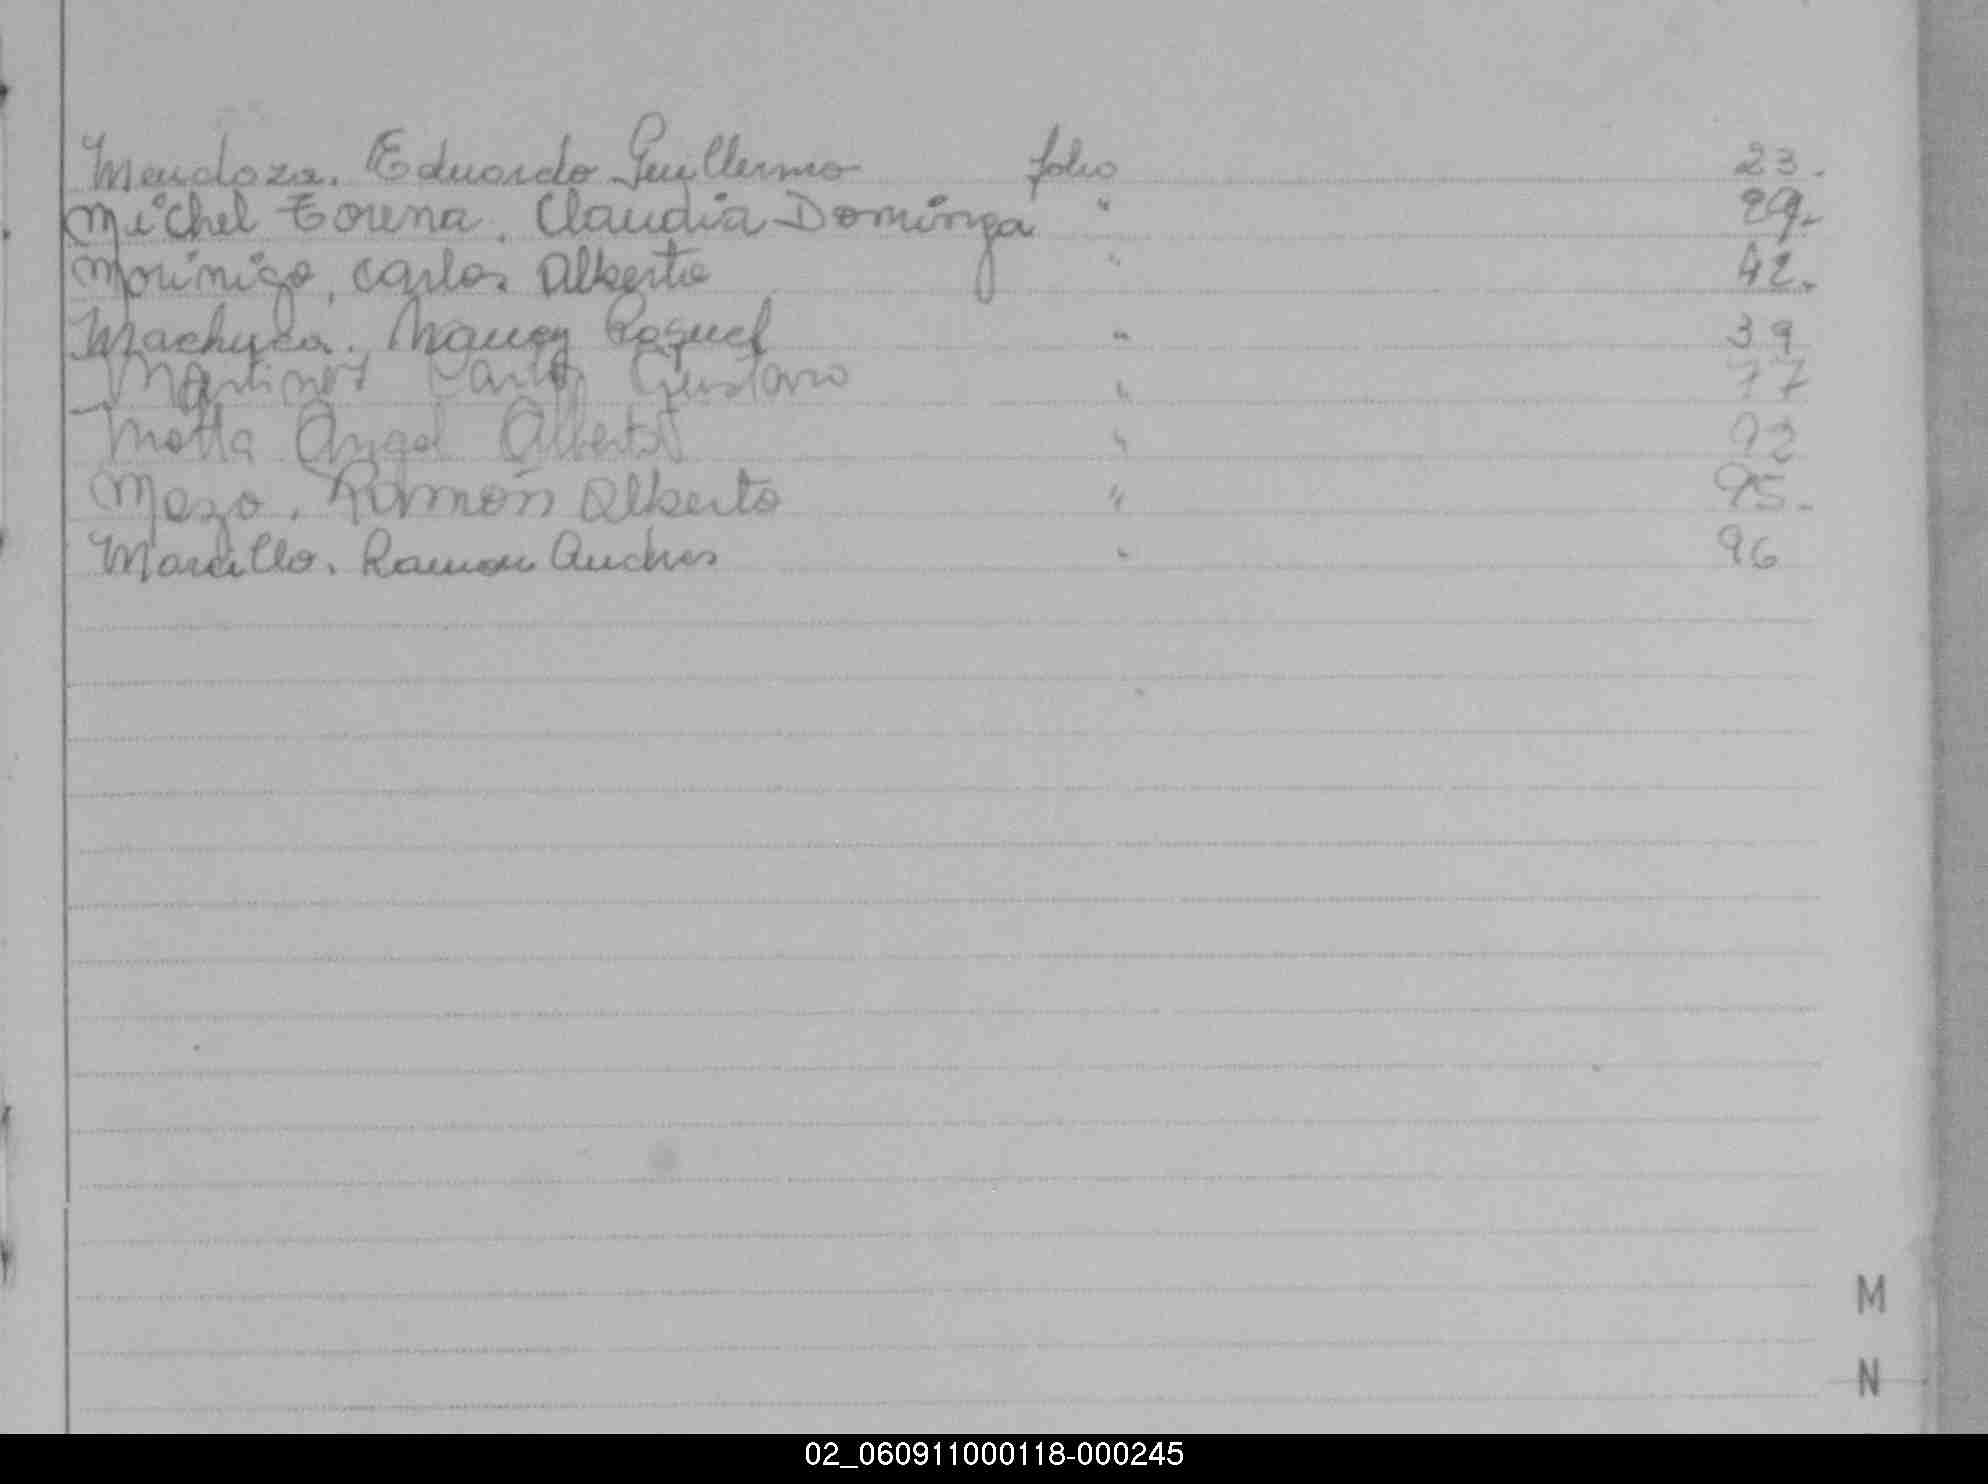 Mendoza. Eduardo Guillermo folio 23.
Michel Torena, Claudia Dominga " 29.
Morinigo, Carlos Alberto " 42.
Machuca. Nancy Raquel " 39
Martinez Carlos Gustavo " 77
Motta Angel Alberto " 92
Mazo, Ramón Alberto " 95.
Marcillo. Ramon Andres " 96
M
N
02_060911000118-000245